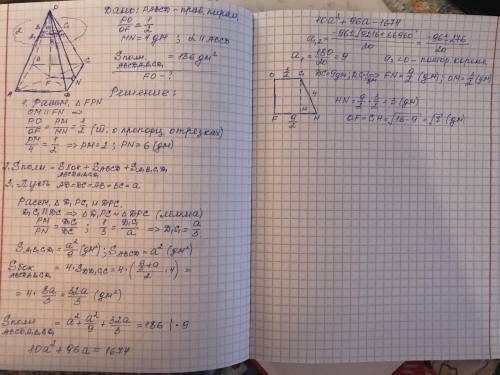 Дано: PABCD - прав. пирам.
PO/OF = 1/2
MN = 4 дм; α ∥ ABCD
Sполн. = 186 дм²
FO - ?
Решение:
1. Рассм. △ FPN
OM ∥ FN ⇒
PO/OF = PM/MN = 1/2 (т. о пропорц. отрезках)
PM/4 = 1/2 ⇒ PM = 2; PN = 6 (дм)
2. Sполн = Sбок + SABCD + SA₁B₁C₁D₁
3. Пусть AD = DC = AB = BC = a
Рассм. △ D₁PC₁ и DPC.
D₁C₁ ∥ DC ⇒ △ D₁PC₁ ∾ △ DPC (лемма)
PM/PN = D₁C₁/DC; 1/3 = D₁C₁/a ⇒ D₁C₁ = a/3
SA₁B₁C₁D₁ = a²/9 (дм²); SABCD = a² (дм²)
Sбок = 4 · SDD₁C₁C = 4 · (a/3 + a / 2 · 4) =
= 4 · 8a/3 = 32a/3 (дм²)
Sполн = a² + a²/9 + 32a/3 = 186 | · 9
10a² + 96a = 1674
10a² + 96a - 1674
a₁,₂ = -96 ± √9216 + 66960 / 20 = -96 ± 276 / 20
a₁ = 180/20 = 9 a₂ < 0 - посторон. корень
DC = 9 дм; D₁C₁ = 3 дм; FN = 9/2 (дм); OM = 3/2 (дм)
HN = 9/2 - 3/2 = 3 (дм)
OF = CH = √16 - 9 = √7 (дм)